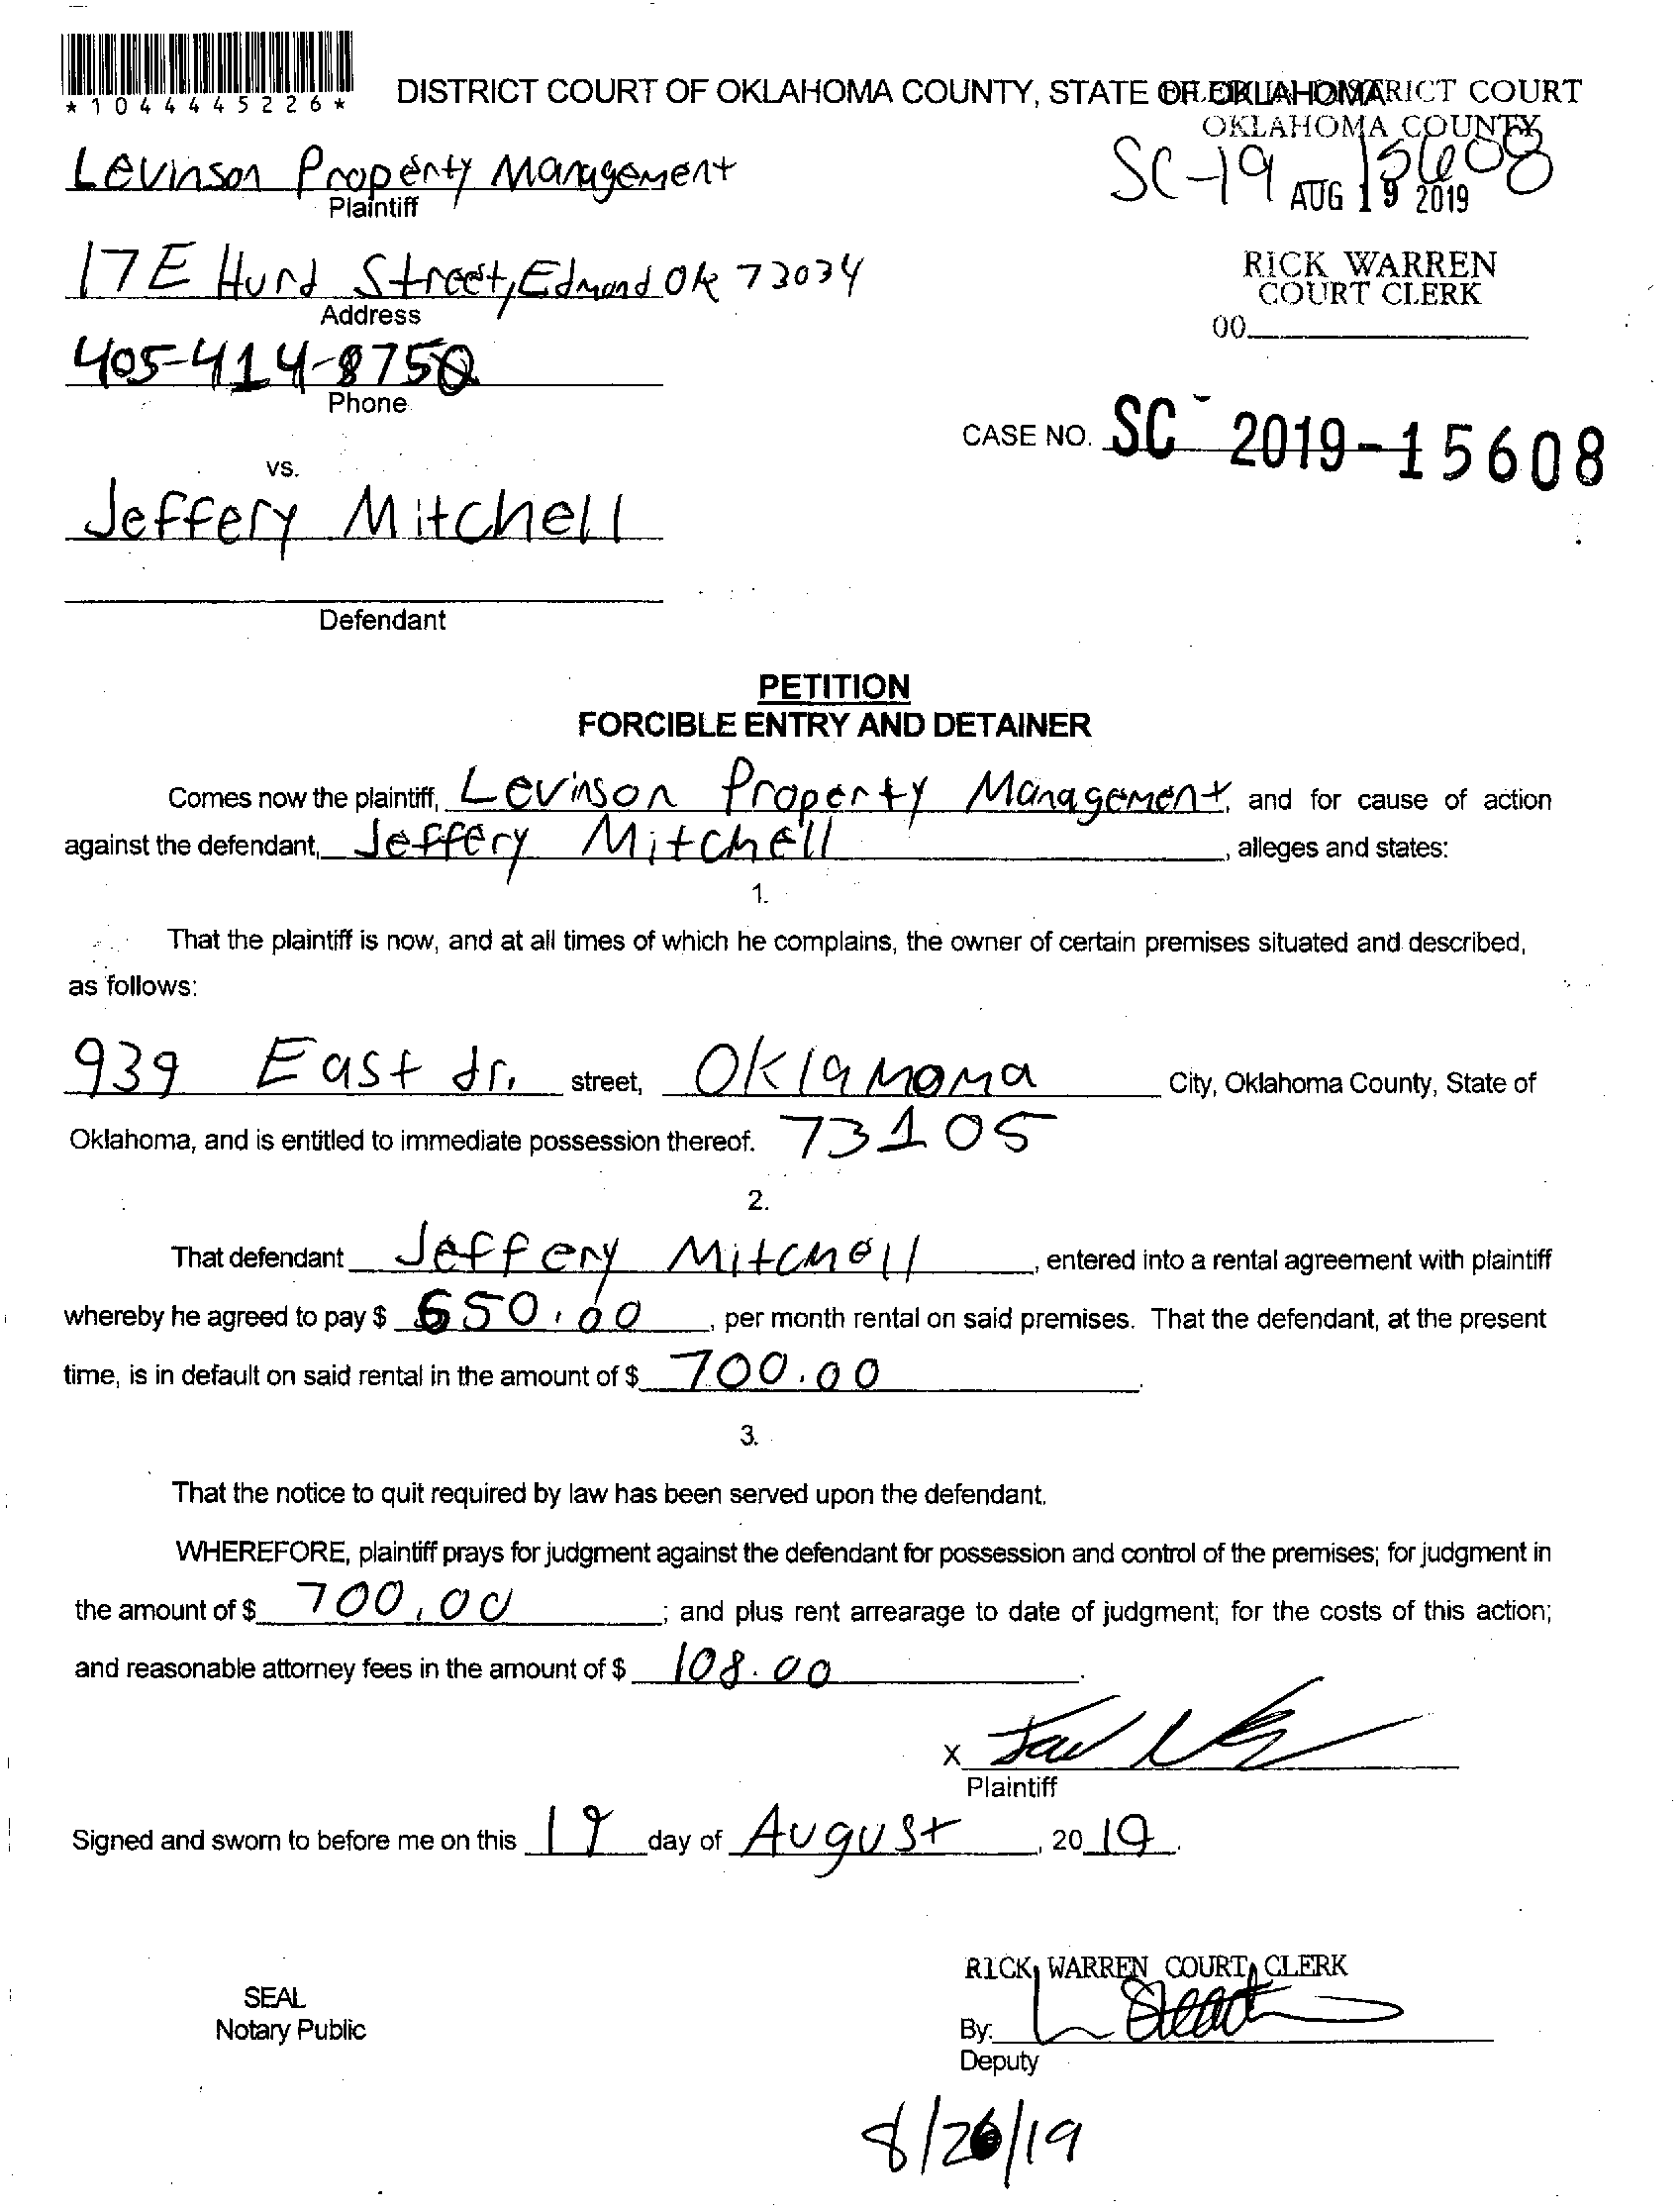 *1044445226*
DISTRICT COURT OF OKLAHOMA COUNTY, STATE OF OKLAHOMA
FILED IN DISTRICT COURT
OKLAHOMA COUNTY
SC-19 15608
AUG 19 2019
Levinson Property Management
Plaintiff
17 E Hurd Street, Edmond OK 73034
Address
RICK WARREN
COURT CLERK
00
405-414-8750
Phone
CASE NO. SC-2019-15608
vs.
Jeffery Mitchell
Defendant
PETITION
FORCIBLE ENTRY AND DETAINER
Comes now the plaintiff, Levinson Property Management, and for cause of action
against the defendant, Jeffery Mitchell, alleges and states:
1.
That the plaintiff is now, and at all times of which he complains, the owner of certain premises situated and described,
as follows:
939 East dr. street, Oklahoma City, Oklahoma County, State of
Oklahoma, and is entitled to immediate possession thereof. 73105
2.
That defendant Jeffery Mitchell, entered into a rental agreement with plaintiff
whereby he agreed to pay $ 650.00, per month rental on said premises. That the defendant, at the present
time, is in default on said rental in the amount of $ 700.00.
3.
That the notice to quit required by law has been served upon the defendant.
WHEREFORE, plaintiff prays for judgment against the defendant for possession and control of the premises; for judgment in
the amount of $ 700.00; and plus rent arrearage to date of judgment; for the costs of this action;
and reasonable attorney fees in the amount of $ 108.00.
X
Plaintiff
Signed and sworn to before me on this 19 day of August, 2019.
RICK WARREN COURT CLERK
SEAL
Notary Public
By:
Deputy
8/26/19